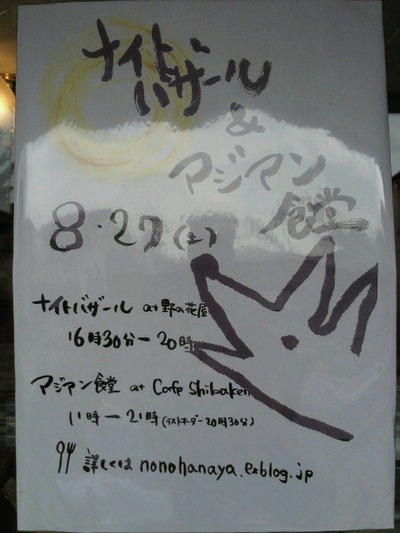 ナイト
バザール
&
マジアン
食堂
8・27(土)
ナイトバザール at 野の花屋
16時30分ー20時
マジアン食堂 at Cafe Shibaken
11時ー21時(ラストオーダー20時30分)
詳しくは nonohanaya.exblog.jp